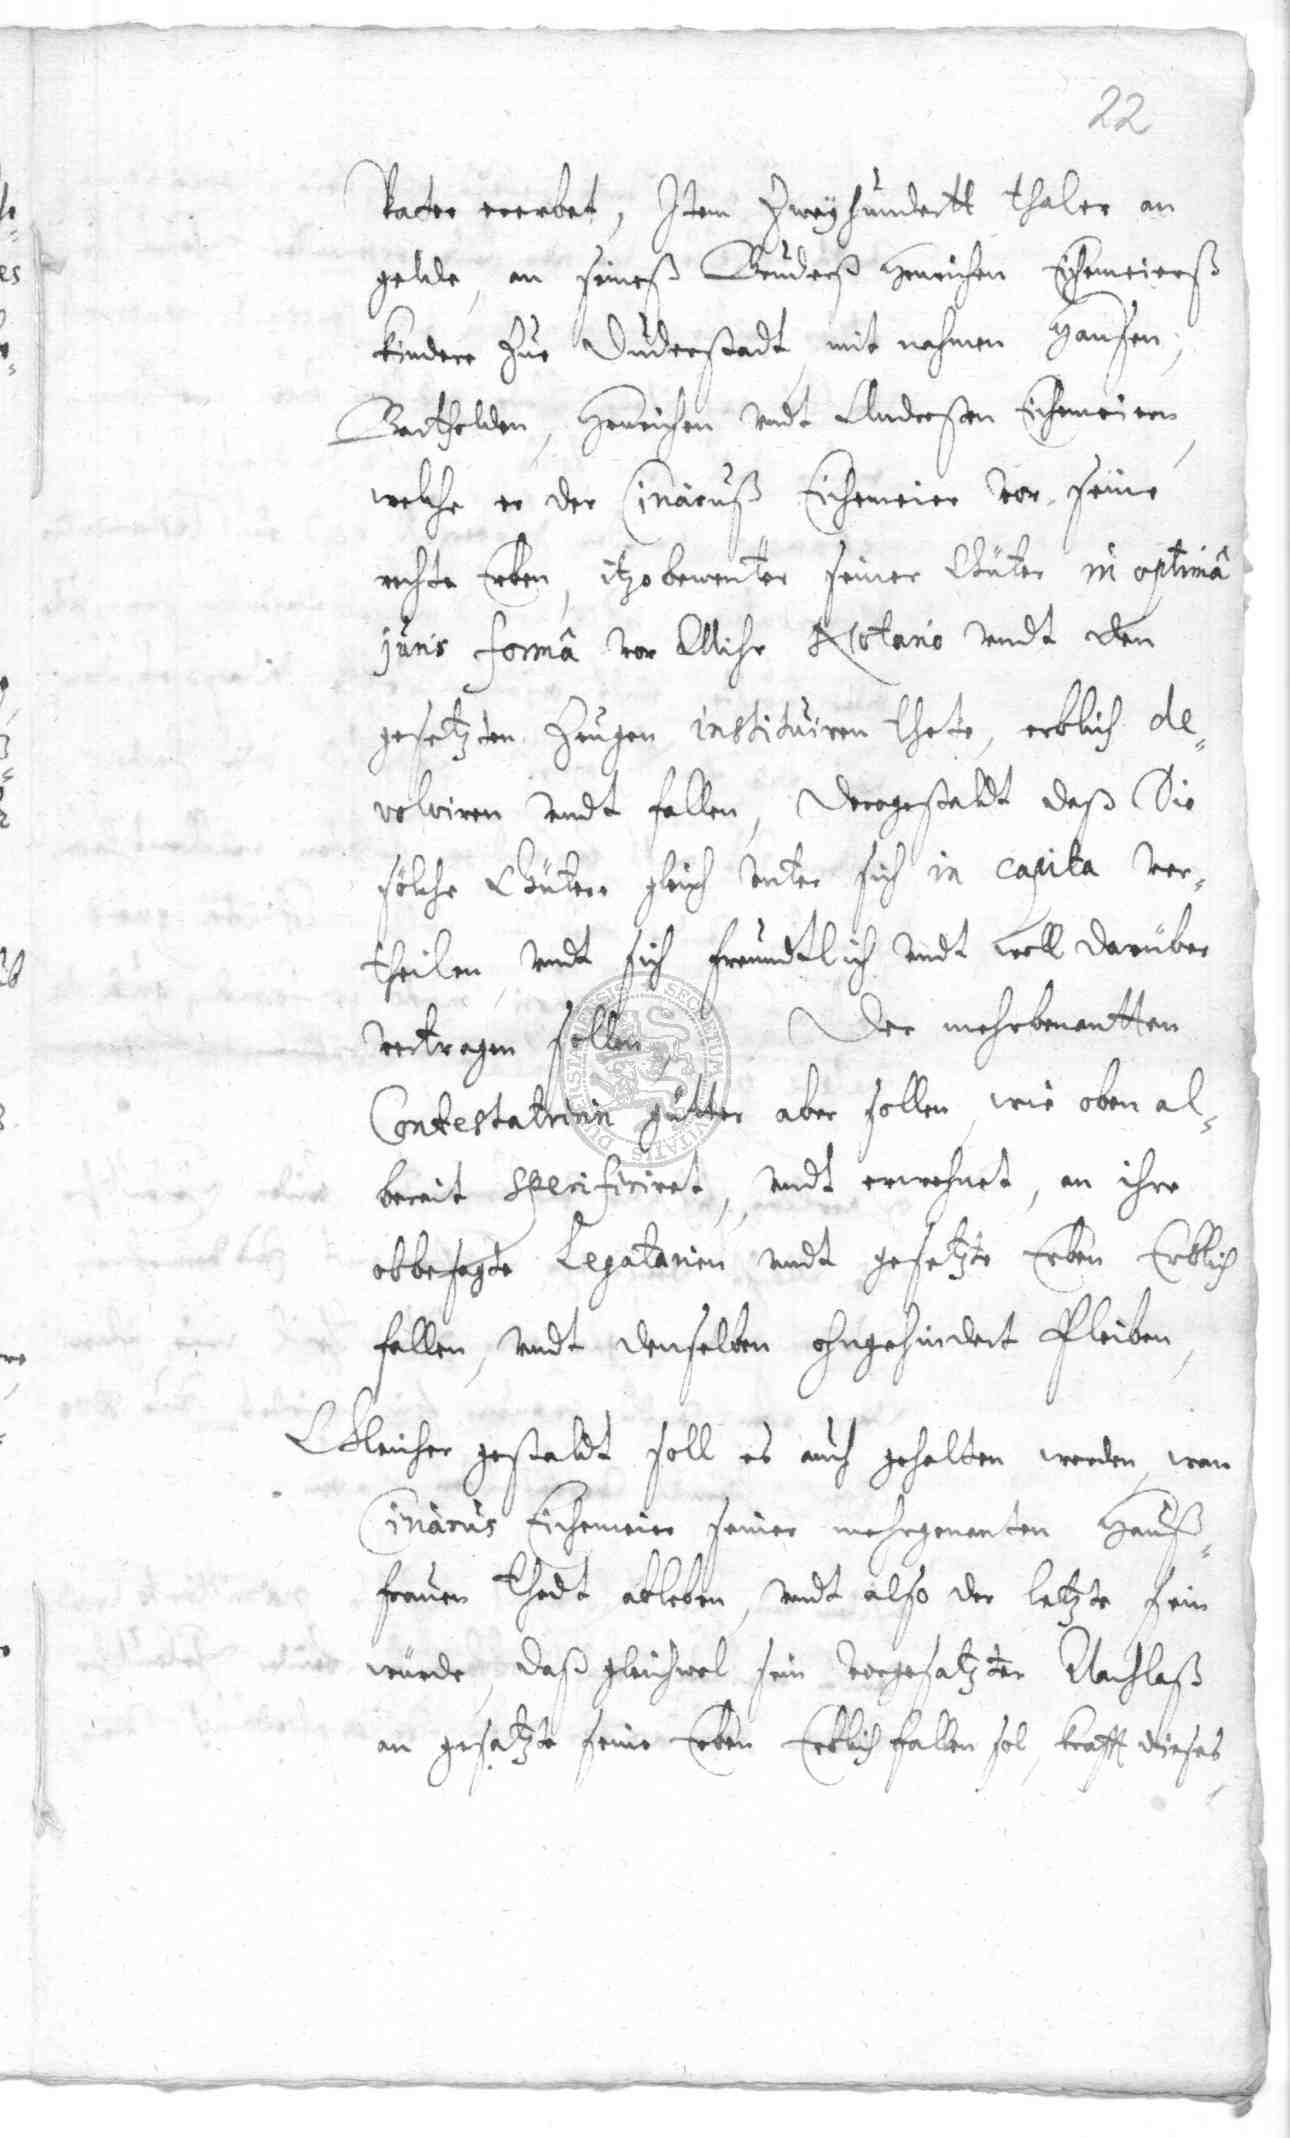 22
Vater ererbet, Item Zweyhundertt thaler an
gelde, an seineß Bruderß Henrichen Eichemeierß
kindere Zue Duderstadt, mit nahmen Hansen,
Bartholden, Henrichen vndt Andresen Eichemeiern,
welche er der Cinäcuß Eichemeier vor seine
rechte Erben, itzobenenter seiner Güter in optimâ
juris formâ vor Mihr Notario vndt den
gesetzten Zeugen instituiren thete, erblich de-
volviren vndt fallen, Derogestaldt daß Sie
solche Gütere gleich vnter sich in capita ver-
theilen, vndt sich freundtlich vndt woll darüber
vertragen sollen, Der mehrbenantten
Contestatricin gütter aber sollen, wie oben al-
bereit specificiret, vndt erwehnet, an ihre
obbesagte Legatarien vndt gesetzte Erben Erblich
fallen, vndt denselben ohngehindert Pleiben,
Gleicher gestaldt soll es auch gehalten werden, wan
Cinäcus Eichemeier seiner mehrgenanten Hauß-
frauen Thodt ableben, vndt also der letzte sein
würde, daß gleichwol sein vorgesatzter Nachlaß
an gesatzte seine Erben Erblich fallen sol, krafft dieses,